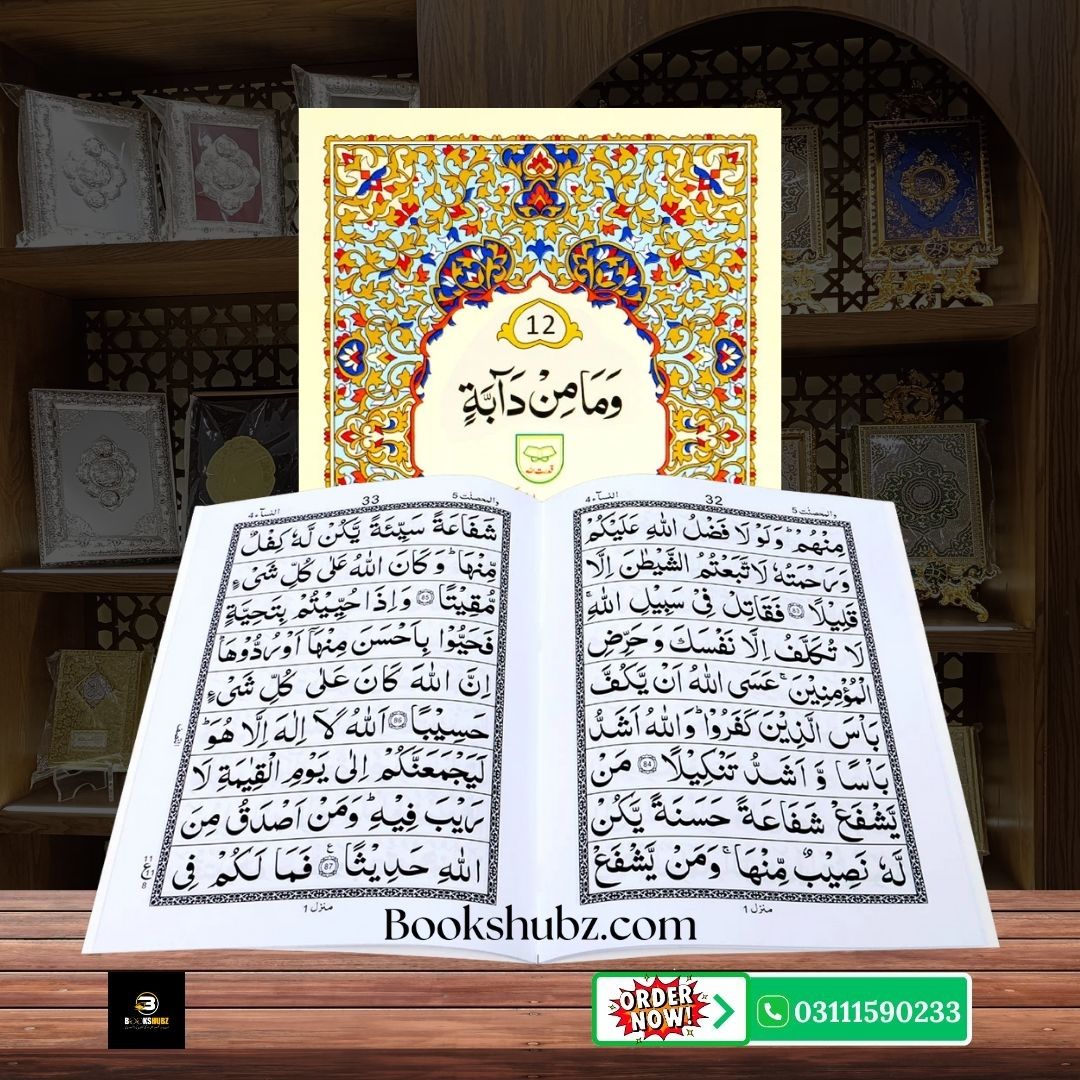 12
وَمَا مِنْ دَآبَّةٍ
قدرت اللہ
والمحصنٰت 5
32
النسآء 4
مِنْهُمْ ؕ وَلَوْ لَا فَضْلُ اللّٰهِ عَلَيْكُمْ
وَرَحْمَتُهٗ لَاتَّبَعْتُمُ الشَّيْطٰنَ اِلَّا
قَلِيْلًا ﴿83﴾ فَقَاتِلْ فِيْ سَبِيْلِ اللّٰهِ ۚ
لَا تُكَلَّفُ اِلَّا نَفْسَكَ وَحَرِّضِ
الْمُؤْمِنِيْنَ ۚ عَسَى اللّٰهُ اَنْ يَّكُفَّ
بَاْسَ الَّذِيْنَ كَفَرُوْا ؕ وَاللّٰهُ اَشَدُّ
بَاْسًا وَّ اَشَدُّ تَنْكِيْلًا ﴿84﴾ مَنْ
يَّشْفَعْ شَفَاعَةً حَسَنَةً يَّكُنْ
لَّهٗ نَصِيْبٌ مِّنْهَا ۚ وَمَنْ يَّشْفَعْ
منزل 1
والمحصنٰت 5
33
النسآء 4
شَفَاعَةً سَيِّئَةً يَّكُنْ لَّهٗ كِفْلٌ
مِّنْهَا ؕ وَكَانَ اللّٰهُ عَلٰى كُلِّ شَيْءٍ
مُّقِيْتًا ﴿85﴾ وَاِذَا حُيِّيْتُمْ بِتَحِيَّةٍ
فَحَيُّوْا بِاَحْسَنَ مِنْهَاۤ اَوْ رُدُّوْهَا ؕ
اِنَّ اللّٰهَ كَانَ عَلٰى كُلِّ شَيْءٍ
حَسِيْبًا ﴿86﴾ اَللّٰهُ لَاۤ اِلٰهَ اِلَّا هُوَ ؕ
لَيَجْمَعَنَّكُمْ اِلٰى يَوْمِ الْقِيٰمَةِ لَا
رَيْبَ فِيْهِ ؕ وَمَنْ اَصْدَقُ مِنَ
اللّٰهِ حَدِيْثًا ﴿87﴾ فَمَا لَكُمْ فِي
11
ع
11
8
منزل 1
Bookshubz.com
BOOKSHUBZ
ORDER
NOW!
03111590233